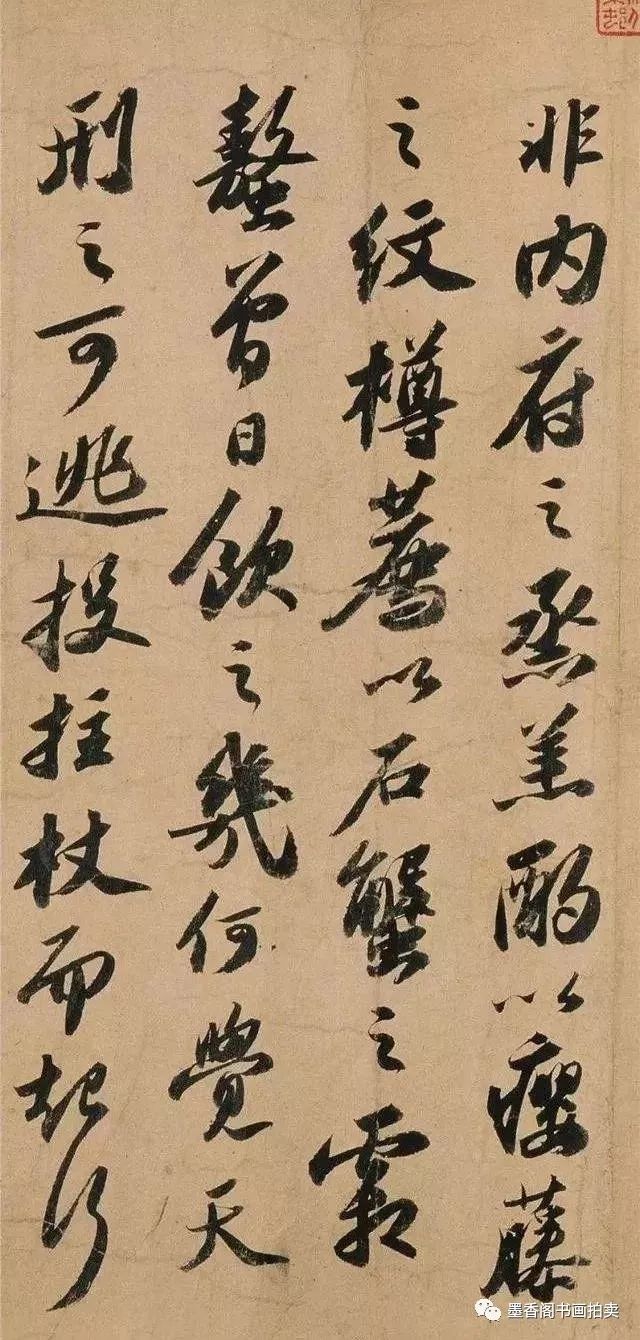 非内府之烝羔酌以癭藤
之紋樽薦以石蟹之霜
螯曾日飲之幾何覺天
刑之可逃投拄杖而起行
墨香阁书画拍卖